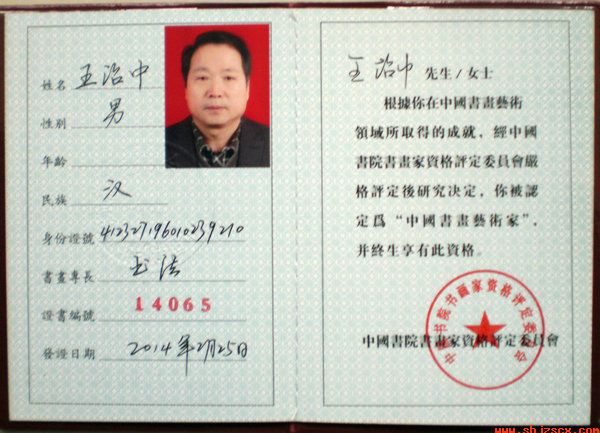 姓名 王治中
性别 男
年齡
民族 汉
身份證號
書畫專長 书法
證書編號 14065
發證日期 2014年2月25日
王治中 先生/女士
根據你在中國書畫藝術
領域所取得的成就，經中國
書院書畫家資格評定委員會嚴
格評定後研究决定，你被認
定爲“中國書畫藝術家”，
并終生享有此資格。
中國書院書畫家資格評定委員會
中国书院书画家资格评定委员会
www.shjzscx.com